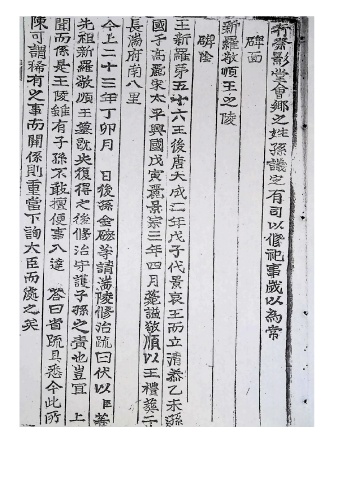 行祭影堂會鄉之姓孫議定有司以修祀事歲以為常
碑面
新羅敬順王之陵
碑陰
王新羅第五十六王後唐天成二年戊子代景哀王而立清泰乙未孫
國于高麗宋太平興國戊寅麗景宗三年四月薨謚敬順以王禮葬二
長湍府南八里
今上二十三年丁卯月 日後孫金磁等請湍陵修治疏曰伏以臣等
先祖新羅敬順王墓既失復得之後修治守護子孫之責也豈宜 上
聞而係是王陵雖有子孫不敢擅便事入達 答曰省疏具悉今此所
陳可謂稀有之事而關係則重當下詢大臣而處之矣